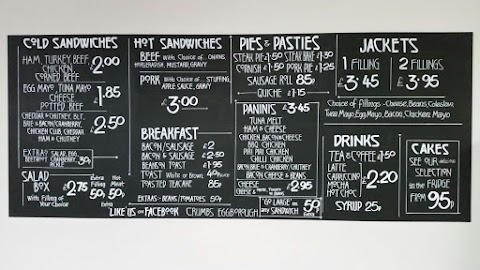 COLD SANDWICHES
HAM, TURKEY, BEEF,
CHICKEN,
CORNED BEEF
£2.00
EGG MAYO, TUNA MAYO
CHEESE
POTTED BEEF
£1.85
CHEDDAR & CHUTNEY, BLT,
BRIE & BACON/CRANBERRY,
CHICKEN CLUB, CHEDDAR,
HAM & CHUTNEY
£2.50
EXTRAS SALAD, EGG
BEETROOT CRANBERRY
PICKLE
30p
SALAD
BOX
With Filling of
Your Choice
£2.75
Extra
Filling
50p
Hot
Meat
50p
HOT SANDWICHES
BEEF With Choice of.. ONIONS
HORSERADISH, MUSTARD, GRAVY
PORK With Choice of.. STUFFING,
APPLE SAUCE, GRAVY
£3.00
BREAKFAST
BACON/SAUSAGE £2
BACON & SAUSAGE £2.50
BEANS ON TOAST £1.95
TOAST White or Brown 40p Slice
TOASTED TEACAKE 85p
EXTRAS - BEANS/TOMATOES 50p
PIES & PASTIES
STEAK PIE £1.50 STEAK BAKE £1.30
CORNISH £1.50 PORK PIE £1.25
SAUSAGE ROLL 85p
QUICHE £1.15
PANINIS £3.45
TUNA MELT
HAM & CHEESE
CHICKEN, BACON/CHEESE
BBQ CHICKEN
PIRI PIRI CHICKEN
CHILLI CHICKEN
BACON, BRIE & CRANBERRY/CHUTNEY
BACON, CHEESE & BEANS
CHEESE
CHEESE &
£2.95
"GO LARGE" ON
any SANDWICH
50p
Extra
JACKETS
1 FILLING
£3.45
2 FILLINGS
£3.95
Choice of Fillings - Cheese, Beans, Coleslaw
Tuna Mayo, Egg Mayo, Bacon, Chicken Mayo
DRINKS
TEA & COFFEE £1.50
LATTE
CAPPUCCINO
MOCHA
HOT CHOC
£2.20
SYRUP 25p
CAKES
SEE OUR
SELECTION
in the FRIDGE
FROM 95p
LIKE US ON FACEBOOK CRUMBS EGGBOROUGH